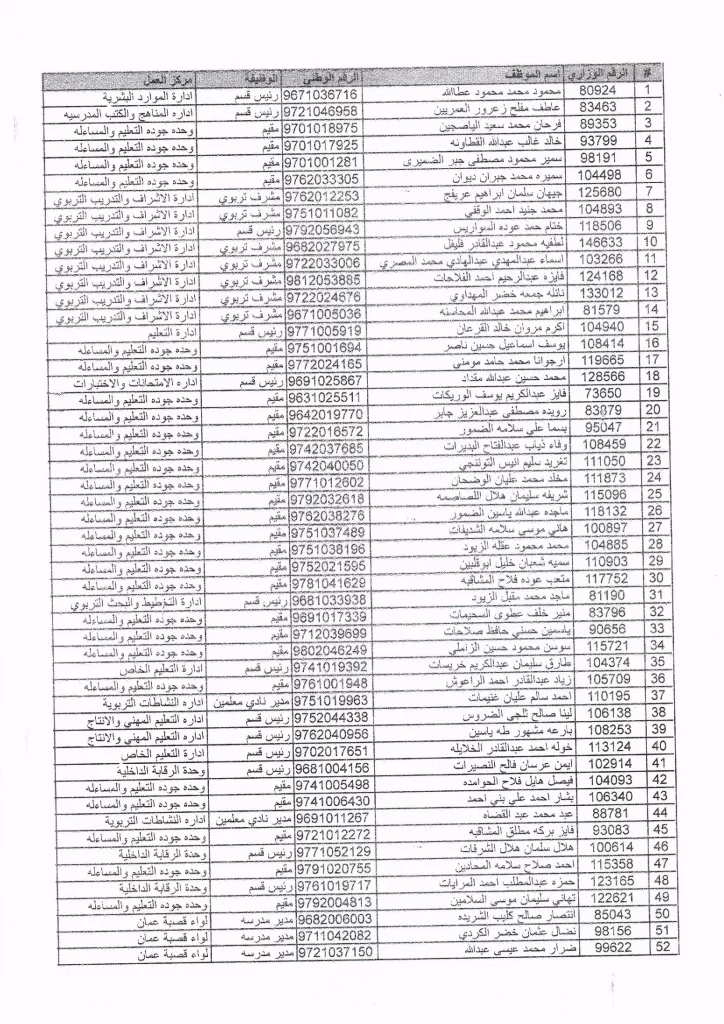 # الرقم الوزاري اسم الموظف الرقم الوطني الوظيفة مركز العمل
1 80924 محمود محمد محمود عطاالله 9671036716 رئيس قسم ادارة الموارد البشرية
2 83463 عاطف مفلح زعرور العمريين 9721046958 رئيس قسم اداره المناهج والكتب المدرسيه
3 89353 فرحان محمد سعيد الياصجين 9701018975 مقيم وحده جوده التعليم والمساءله
4 93799 خالد غالب عبدالله القطاونه 9701017925 مقيم وحده جوده التعليم والمساءله
5 98191 سمير محمود مصطفى جبر الضميرى 9701001281 مقيم وحده جوده التعليم والمساءله
6 104498 سميره محمد جبران ديوان 9762033305 مقيم وحده جوده التعليم والمساءله
7 125680 جيهان سلمان ابراهيم عريفج 9762012253 مشرف تربوي ادارة الاشراف والتدريب التربوي
8 104893 محمد جنيد احمد الوقفي 9751011082 مشرف تربوي ادارة الاشراف والتدريب التربوي
9 118506 ختام حمد عوده السواريس 9792056943 رئيس قسم ادارة الاشراف والتدريب التربوي
10 146633 لطفيه محمود عبدالقادر فليفل 9682027975 مشرف تربوي ادارة الاشراف والتدريب التربوي
11 103266 اسماء عبدالمهدي عبدالهادي محمد المصري 9722033006 مشرف تربوي ادارة الاشراف والتدريب التربوي
12 124168 فايزه عبدالرحيم احمد الفلاحات 9812053885 مشرف تربوي ادارة الاشراف والتدريب التربوي
13 133012 نائله جمعه خضر المهداوي 9722024676 مشرف تربوي ادارة الاشراف والتدريب التربوي
14 81579 ابراهيم محمد عبدالله المحاسنه 9671005036 مشرف تربوي ادارة الاشراف والتدريب التربوي
15 104940 اكرم مروان خالد القرعان 9771005919 رئيس قسم ادارة التعليم
16 108414 يوسف اسماعيل حسين ناصر 9751001694 مقيم وحده جوده التعليم والمساءله
17 119665 ارجوانا محمد حامد مومني 9772024165 مقيم وحده جوده التعليم والمساءله
18 128566 محمد حسين عبدالله مقداد 9691025867 رئيس قسم اداره الامتحانات والاختبارات
19 73650 فايز عبدالكريم يوسف الوريكات 9631025511 مقيم وحده جوده التعليم والمساءله
20 83879 رويده مصطفى عبدالعزيز جابر 9642019770 مقيم وحده جوده التعليم والمساءله
21 95047 بسما علي سلامه الضمور 9722016572 مقيم وحده جوده التعليم والمساءله
22 108459 وفاء ذياب عبدالفتاح البديرات 9742037685 مقيم وحده جوده التعليم والمساءله
23 111050 تغريد سليم انيس التوتنجي 9742040050 مقيم وحده جوده التعليم والمساءله
24 111873 مخلد محمد عليان الوضحان 9771012602 مقيم وحده جوده التعليم والمساءله
25 115096 شريفه سليمان هلال اللصاصمه 9792032618 مقيم وحده جوده التعليم والمساءله
26 118132 ماجده عبدالله ياسين الضمور 9762038276 مقيم وحده جوده التعليم والمساءله
27 100897 هاني موسى سلامه الشديفات 9751037489 مقيم وحده جوده التعليم والمساءله
28 104885 محمد محمود عقله الزيود 9751038196 مقيم وحده جوده التعليم والمساءله
29 110903 سميه شعبان خليل ابوقلبين 9752021595 مقيم وحده جوده التعليم والمساءله
30 117752 متعب عوده فلاح المشاقبه 9781041629 مقيم وحده جوده التعليم والمساءله
31 81190 ماجد محمد مقبل الزيود 9681033938 رئيس قسم ادارة التخطيط والبحث التربوي
32 83796 منير خلف عطوى السحيمات 9691017339 مقيم وحده جوده التعليم والمساءله
33 90656 ياسمين حسني حافظ صلاحات 9712039699 مقيم وحده جوده التعليم والمساءله
34 115721 سوسن محمود حسين الزاملي 9802046249 مقيم وحده جوده التعليم والمساءله
35 104374 طارق سليمان عبدالكريم خريسات 9741019392 رئيس قسم ادارة التعليم الخاص
36 105709 زياد عبدالقادر احمد الراعوش 9761001948 مقيم وحده جوده التعليم والمساءله
37 110195 احمد سالم عليان غنيمات 9751019963 مدير نادي معلمين اداره النشاطات التربوية
38 106138 لينا صالح ثلجي الضروس 9752044338 رئيس قسم ادارة التعليم المهني والانتاج
39 108253 بارعه مشهور طه ياسين 9762040956 رئيس قسم ادارة التعليم المهني والانتاج
40 113124 خوله احمد عبدالقادر الخلايله 9702017651 رئيس قسم ادارة التعليم الخاص
41 102914 ايمن عرسان فالح النصيرات 9681004156 رئيس قسم وحدة الرقابة الداخلية
42 104093 فيصل هايل فلاح الحوامده 9741005498 مقيم وحده جوده التعليم والمساءله
43 106340 بشار احمد علي بني احمد 9741006430 مقيم وحده جوده التعليم والمساءله
44 88781 عبد محمد عبد القضاه 9691011267 مدير نادي معلمين اداره النشاطات التربوية
45 93083 فايز بركه مطلق المشاقبه 9721012272 مقيم وحده جوده التعليم والمساءله
46 100614 هلال سلمان هلال الشرفات 9771052129 رئيس قسم وحدة الرقابة الداخلية
47 115358 احمد صلاح سلامه المحادين 9791020755 مقيم وحده جوده التعليم والمساءله
48 123165 حمزه عبدالمطلب احمد المرايات 9761019717 رئيس قسم وحدة الرقابة الداخلية
49 122621 تهاني سليمان موسى السلامين 9792004813 مقيم وحده جوده التعليم والمساءله
50 85043 انتصار صالح كليب الشريده 9682006003 مدير مدرسه لواء قصبة عمان
51 98156 نضال عثمان خضر الكردي 9711042082 مدير مدرسه لواء قصبة عمان
52 99622 ضرار محمد عيسى عبدالله 9721037150 مدير مدرسه لواء قصبة عمان